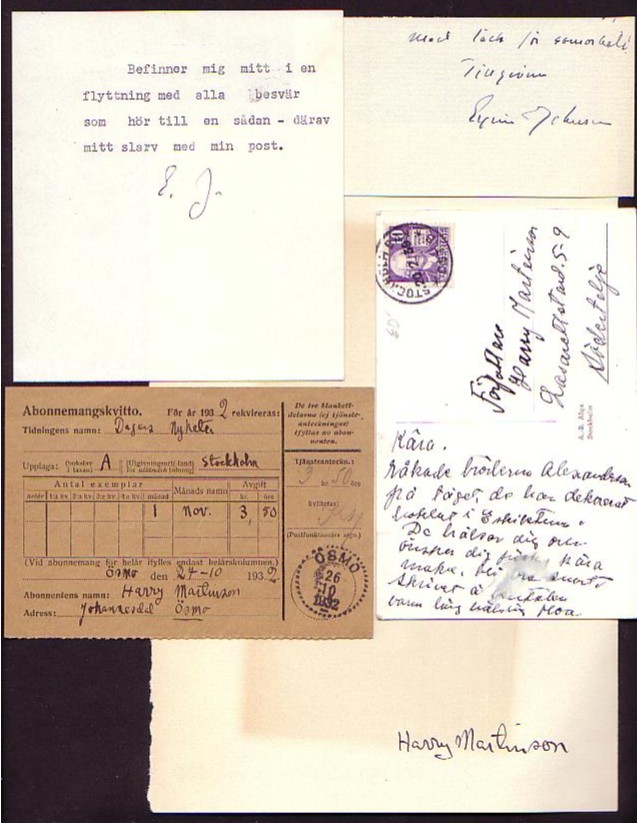 Befinner mig mitt i en
flyttning med alla besvär
som hör till en sådan - därav
mitt slarv med min post.
E. J.
med tack för
Tillgivne
Eyvind Johnson
10
STOCKHOLM
Författare
Harry Martinson
Lasarettet avd. 5-9
Södertälje
Stockholm
Kära.
Råkade bröderna Alexanderson
på tåget, de har dekorerat
De hälsar dig och
önskar dig kära
maka.
skrivet å
varm hälsn Moa
Abonnemangskvitto. För år 1932 rekvireras:
Tidningens namn: Dagens Nyheter
Upplaga: A (Utgivningsort/-land) Stockholm
Antal exemplar
helår 1:a kv. 2:a kv. 3:e kv. 4:e kv. månad Månads namn Avgift
kr. öre
1 nov. 3,50
(Vid abonnemang för helår ifylles endast helårskolumnen.)
Ösmo den 24-10 1932
Abonnentens namn: Harry Martinson
Adress: Johannesdal Ösmo
De tre blankett-
delarna (ej tjänste-
anteckningar)
ifyllas av abon-
nenten.
Tjänsteanteckn.:
3 kr. 50 öre
kvitteras:
(Postfunktionärs sign.)
ÖSMO
26
10
1932
Harry Martinson